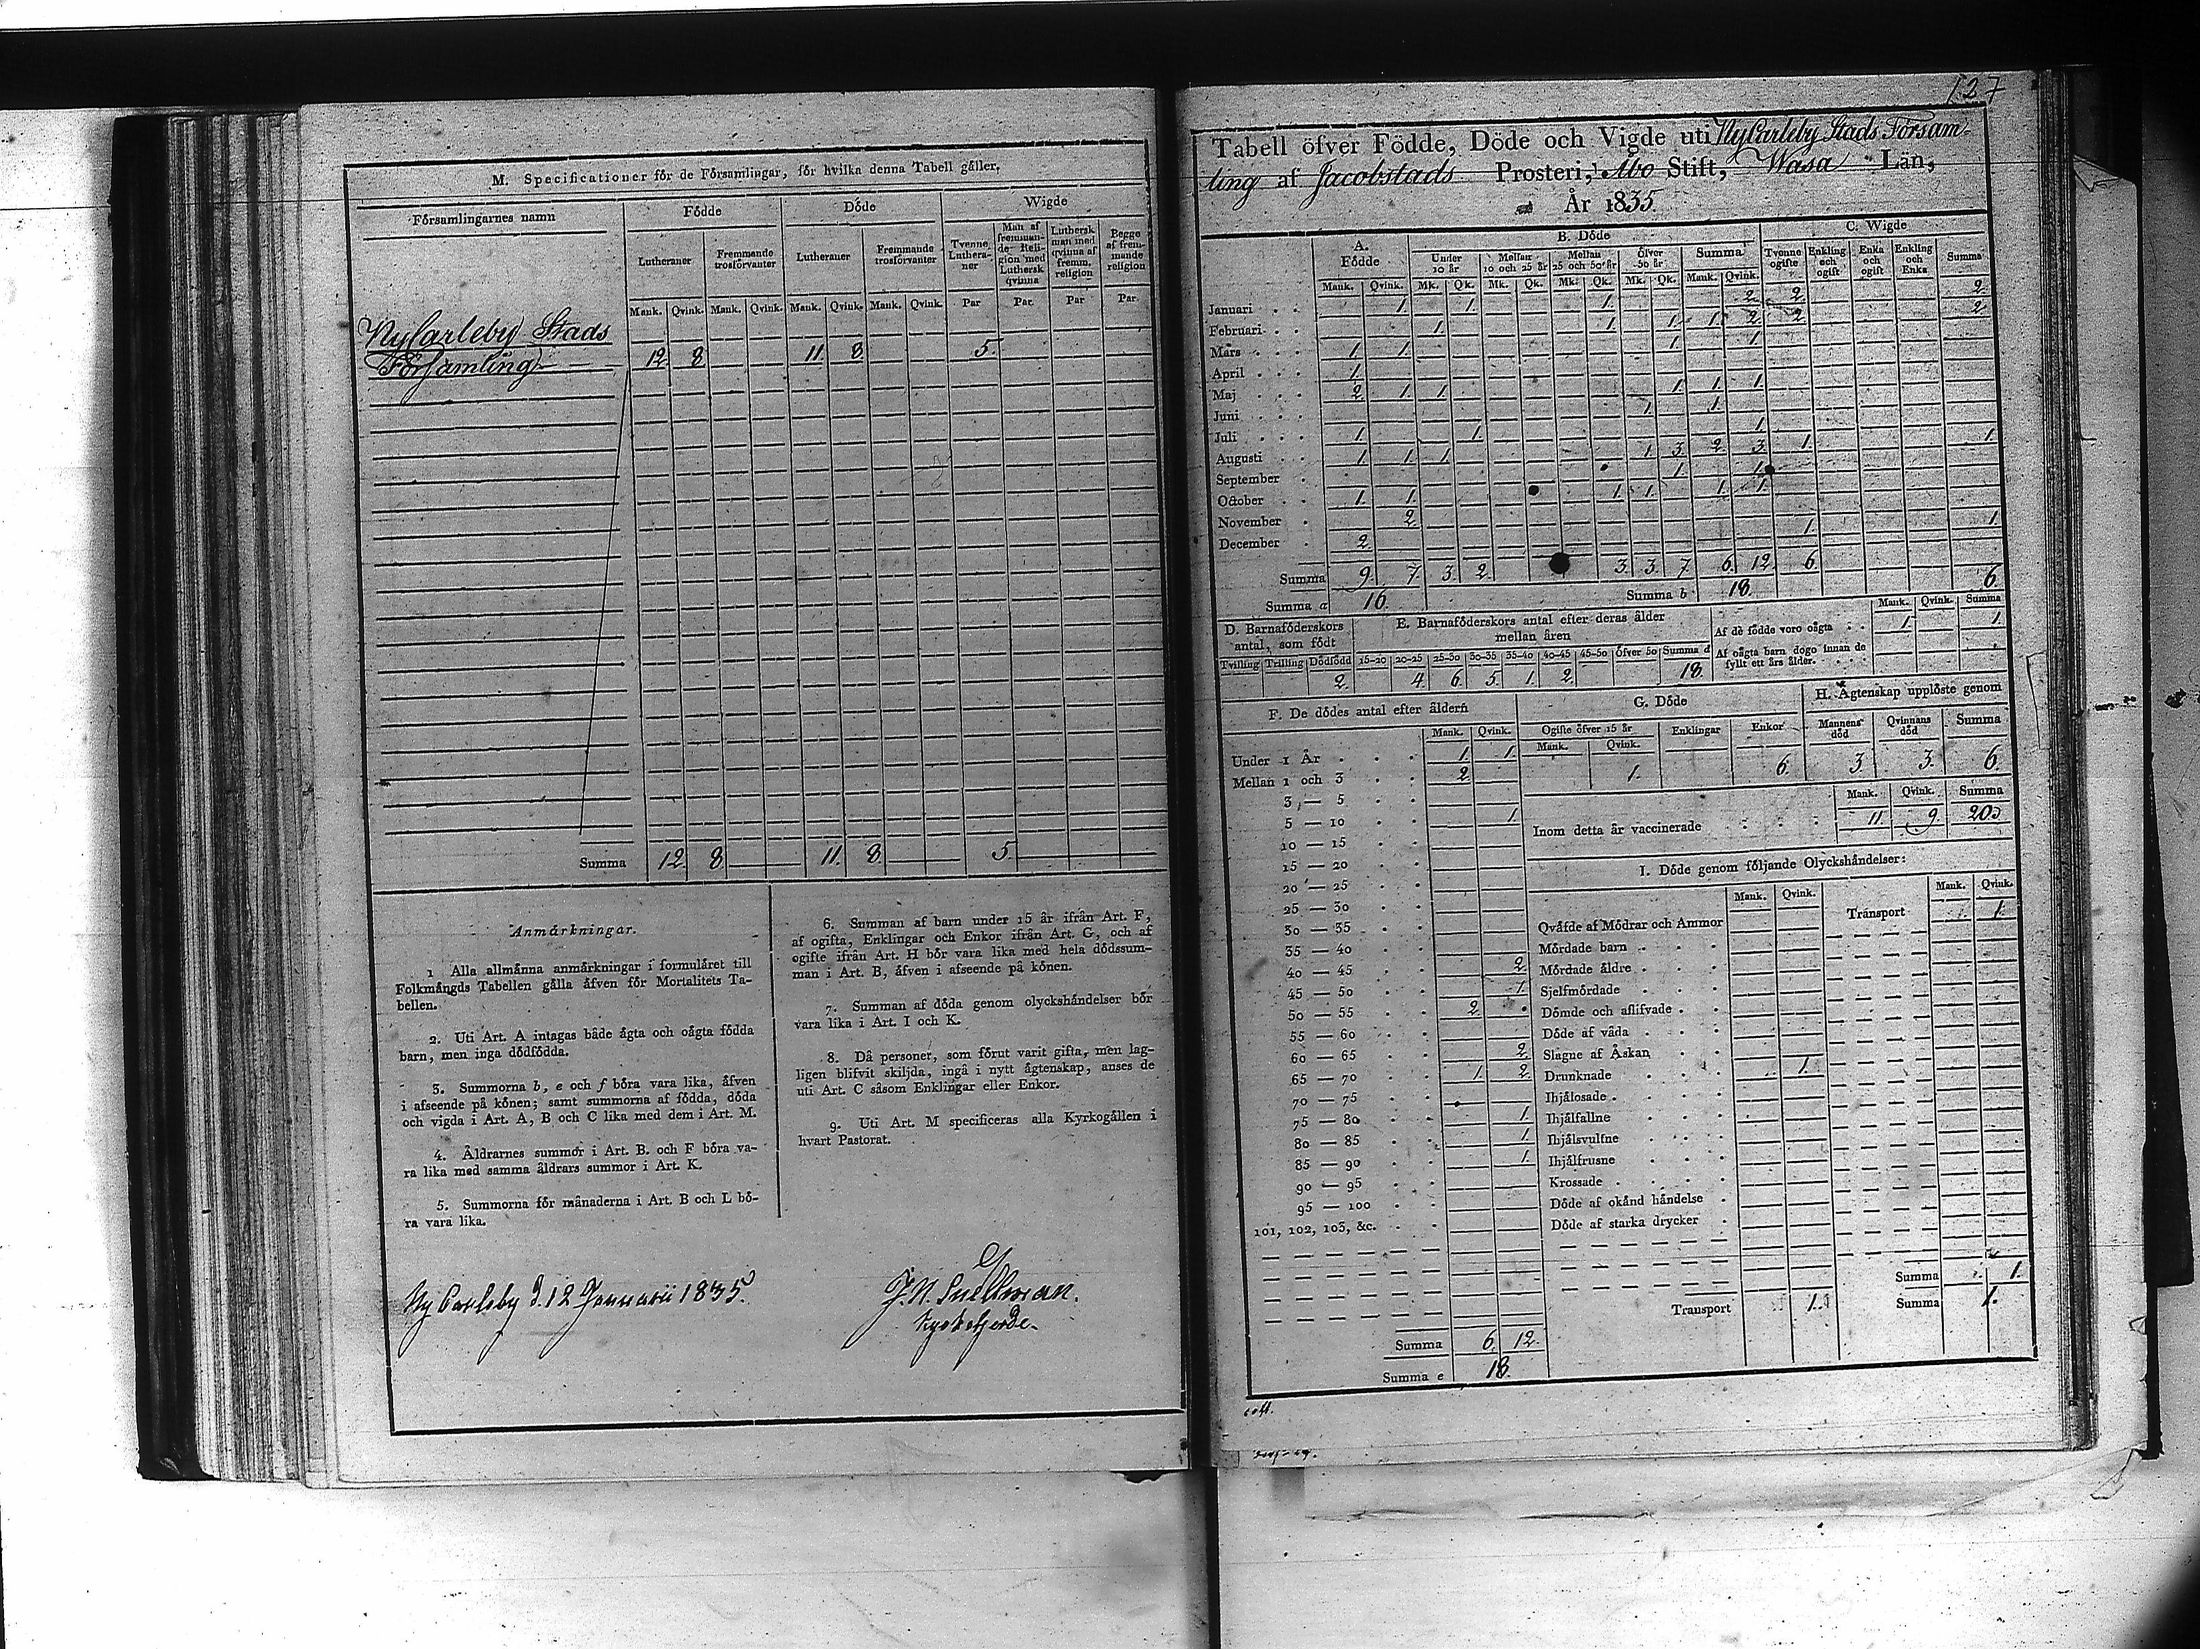 M. Specificationer för de Församlingar, för hvilka denna Tabell gäller,
Församlingarnes namn
Födde
Döde
Wigde
Lutheraner
Fremmande trosförvanter
Lutheraner
Fremmande trosförvanter
Tvenne Lutheraner
Man af fremmande Religion med Luthersk qvinna
Luthersk man med qvinna af fremm. religion
Begge af fremmande religion
Mank. Qvink. Mank. Qvink. Mank. Qvink. Mank. Qvink. Par Par. Par Par.
NyCarleby Stads
Församling 12 8 11 8 5.
Summa 12 8 11. 8 5.
Anmärkningar.
1 Alla allmänna anmärkningar i formuläret till
Folkmängds Tabellen gälla äfven för Mortalitets Ta-
bellen.
2. Uti Art. A intagas både ägta och oägta födda
barn, men inga dödfödda.
3. Summorna b, e och f böra vara lika, äfven
i afseende på könen; samt summorna af födda, döda
och vigda i Art. A, B och C lika med dem i Art. M.
4. Åldrarnes summor i Art. B. och F böra va-
ra lika med samma åldrars summor i Art. K.
5. Summorna för månaderna i Art. B och L bö-
ra vara lika.
6. Summan af barn under 15 år ifrån Art. F,
af ogifta, Enklingar och Enkor ifrån Art. G, och af
ogifte ifrån Art. H bör vara lika med hela dödssum-
man i Art. B, äfven i afseende på könen.
7. Summan af döda genom olyckshändelser bör
vara lika i Art. I och K.
8. Då personer, som förut varit gifta, men lag-
ligen blifvit skiljda, ingå i nytt ägtenskap, anses de
uti Art. C såsom Enklingar eller Enkor.
9. Uti Art. M specificeras alla Kyrkogällen i
hvart Pastorat.
Ny Carleby d. 12 Januarii 1835.
J. N. Snellman.
Kyrkoherde.
127
Tabell öfver Födde, Döde och Vigde uti NyCarleby Stads Försam-
ling af Jacobstads Prosteri, Åbo Stift, Wasa Län,
År 1835.
A. Födde
B. Döde
C. Wigde
Under 10 år
Mellan 10 och 25 år
Mellan 25 och 50 år
öfver 50 år
Summa
Tvenne ogifte
Enkling och ogift
Enka och ogift
Enkling och Enka
Summa
Mank. Qvink. Mk. Qk. Mk. Qk. Mk. Qk. Mk. Qk. Mank. Qvink.
Januari 1. 1. 1. 2 2. 2.
Februari 1. 1. 1. 1. 2. 2. 2
Mars 1. 1. 1. 1.
April 1.
Maj 2 1. 1. 1. 1. 1.
Juni 1. 1.
Juli 1. 1. 1.
Augusti 1. 1. 1. 1. 3. 2 3. 1. 1.
September 1. 1.
October 1. 1. 1. 1. 1. 1.
November 2.
December 2. 1. 1.
Summa 9. 7. 3. 2. 3. 3. 7 6. 12. 6. 6
Summa a 16.
Summa b 18.
D. Barnaföderskors antal, som födt
Tvilling Trilling Dödfödd
2.
E. Barnaföderskors antal efter deras ålder
mellan åren
15-20 20-25 25-30 30-35 35-40 40-45 45-50 öfver 50 Summa d
4. 6. 5. 1. 2. 18.
Mank. Qvink. Summa
Af de födde voro oägta 1. 1.
Af oägta barn dogo innan de
fyllt ett års ålder.
F. De dödes antal efter åldern
Mank. Qvink.
Under 1 År 1. 1.
Mellan 1 och 3 2.
3 — 5
5 — 10 1.
10 — 15
15 — 20
20 — 25
25 — 30
30 — 35
35 — 40
40 — 45 2.
45 — 50 1.
50 — 55 2.
55 — 60
60 — 65 2.
65 — 70 1. 2.
70 — 75
75 — 80 1.
80 — 85 1.
85 — 90 1.
90 — 95
95 — 100
101, 102, 103, &c.
Summa 6. 12.
Summa e 18.
G. Döde
Ogifte öfver 15 år Enklingar Enkor
Mank. Qvink.
1. 6.
H. Ägtenskap upplöste genom
Mannens död Qvinnans död Summa
3. 3. 6.
Mank. Qvink. Summa
Inom detta år vaccinerade 11. 9. 20
I. Döde genom följande Olyckshändelser:
Mank. Qvink.
Qväfde af Mödrar och Ammor
Mördade barn
Mördade äldre
Sjelfmördade
Dömde och aflifvade
Döde af våda
Slagne af Åskan
Drunknade 1.
Ihjälosade
Ihjälfallne
Ihjälsvultne
Ihjälfrusne
Krossade
Döde af okänd händelse
Döde af starka drycker
Transport 1.
Mank. Qvink.
Transport 1.
Summa 1.
Summa 1.